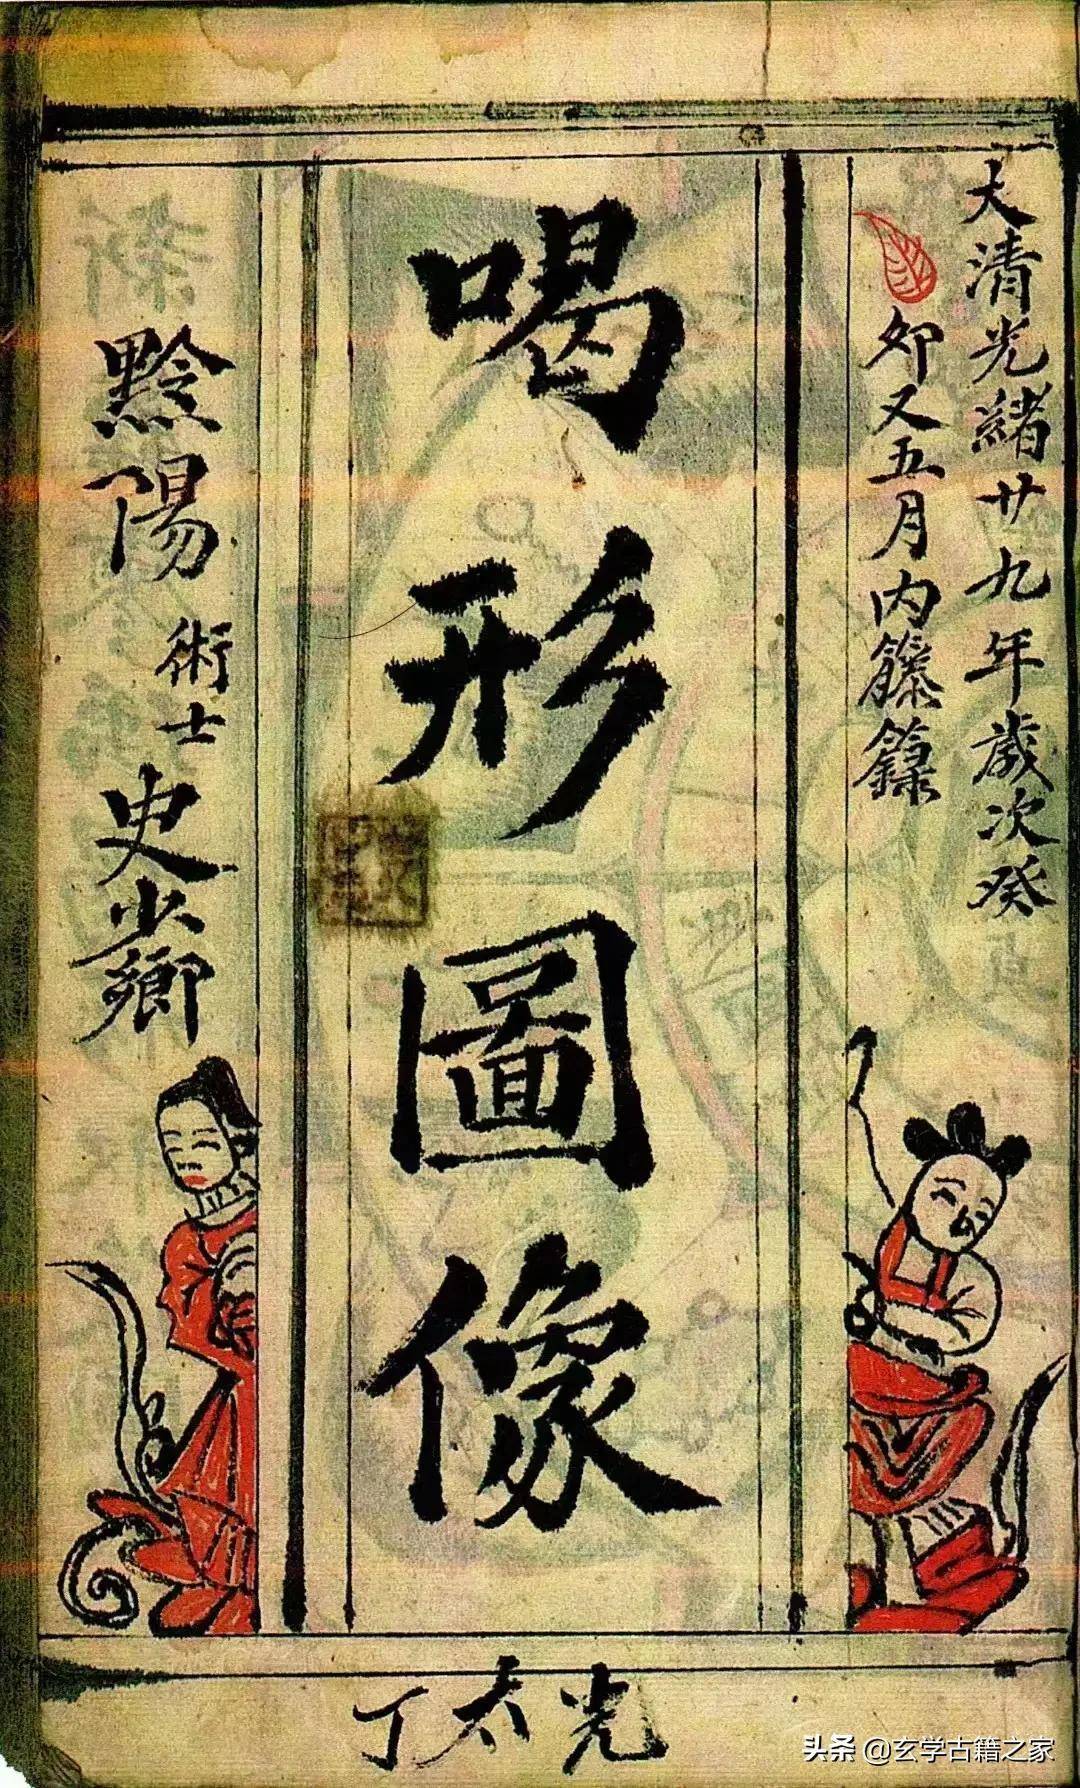 大清光緒廿九年歲次癸
卯又五月內籐籙
喝形圖像
黔陽術士史少卿
丁太光
头条 @玄学古籍之家